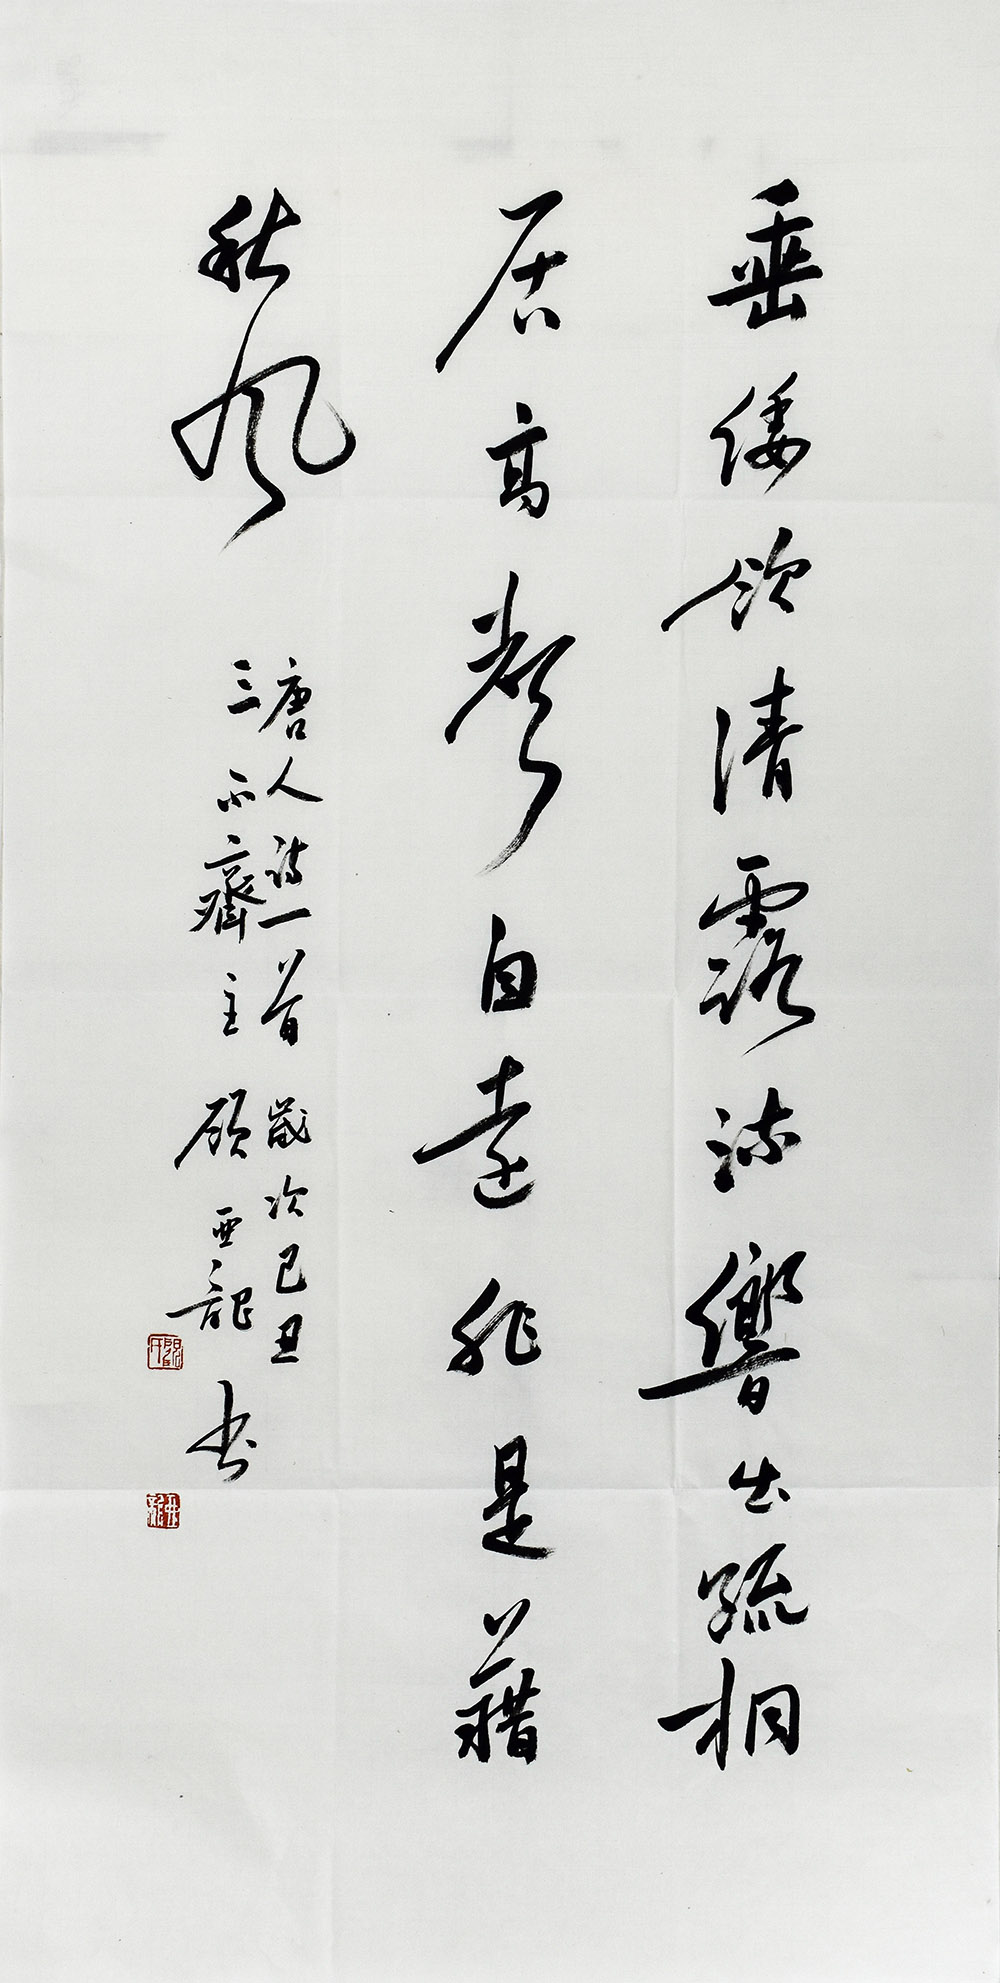 垂緌飲清露流響出疏桐
居高聲自遠非是藉
秋風
唐人詩一首 歲次己丑
三不齋主 顧亞龍書